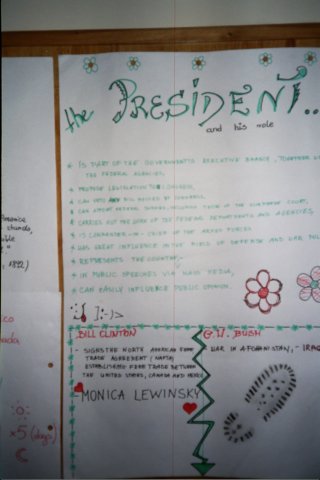 the PRESIDENT...
and his role
IS PART OF THE GOVERNMENT'S EXECUTIVE BRANCH, TOGETHER
THE FEDERAL AGENCIES,
PROPOSE LEGISLATION TO CONGRESS,
CAN VETO ANY BILL PASSED BY CONGRESS,
CAN APPOINT FEDERAL JUDGES, INCLUDING THOSE OF THE SUPREME COURT,
CARRIES OUT THE WORK OF THE FEDERAL DEPARTMENTS AND AGENCIES
IS COMMANDER-IN-CHIEF OF THE ARMED FORCES
HAS GREAT INFLUENCE IN THE FIELD OF DEFENSE AND WAR
REPRESENTS THE COUNTRY
IN PUBLIC SPEECHES VIA MASS MEDIA,
CAN EASILY INFLUENCE PUBLIC OPINION.
;-) >
BILL CLINTON
- SIGNS THE NORTH AMERICAN FREE
TRADE AGREEMENT (NAFTA)
ESTABLISHED FREE TRADE BETWEEN
THE UNITED STATES, CANADA AND MEXICO
- MONICA LEWINSKY
G.W. BUSH
WAR IN AFGHANISTAN, - IRAQ
1892)
x5 (days)